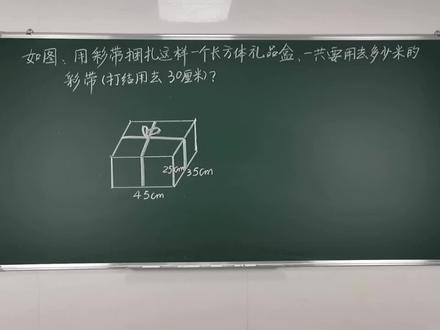 如图、用彩带捆扎这样一个长方体礼品盒、一共要用去多少米的
彩带(打结用去30厘米)?
25cm
35cm
45cm